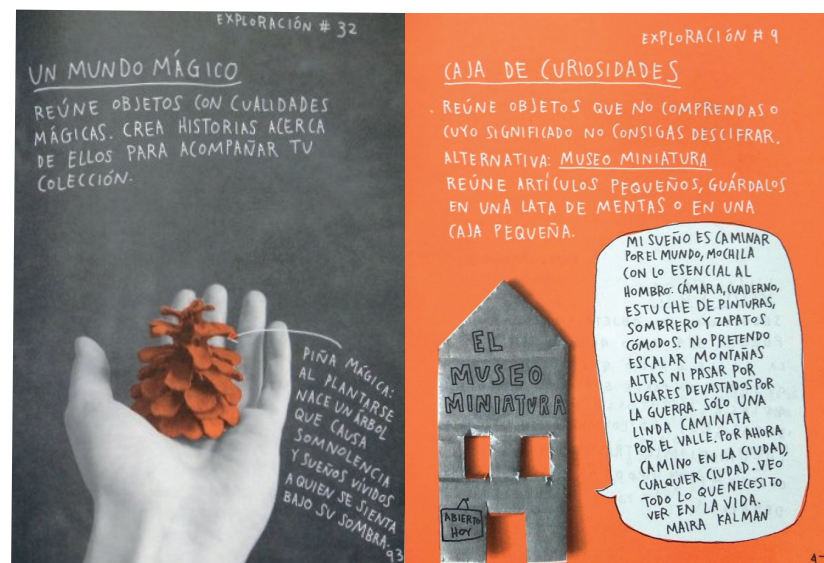 EXPLORACIÓN # 32
UN MUNDO MÁGICO
REÚNE OBJETOS CON CUALIDADES
MÁGICAS. CREA HISTORIAS ACERCA
DE ELLOS PARA ACOMPAÑAR TU
COLECCIÓN.
PIÑA MÁGICA:
AL PLANTARSE
NACE UN ÁRBOL
QUE CAUSA
SOMNOLENCIA
Y SUEÑOS VÍVIDOS
A QUIEN SE SIENTA
BAJO SU SOMBRA.
93
EXPLORACIÓN # 9
CAJA DE CURIOSIDADES
REÚNE OBJETOS QUE NO COMPRENDAS O
CUYO SIGNIFICADO NO CONSIGAS DESCIFRAR.
ALTERNATIVA: MUSEO MINIATURA
REÚNE ARTÍCULOS PEQUEÑOS, GUÁRDALOS
EN UNA LATA DE MENTAS O EN UNA
CAJA PEQUEÑA.
EL
MUSEO
MINIATURA
ABIERTO
HOY
MI SUEÑO ES CAMINAR
POR EL MUNDO, MOCHILA
CON LO ESENCIAL AL
HOMBRO: CÁMARA, CUADERNO,
ESTUCHE DE PINTURAS,
SOMBRERO Y ZAPATOS
CÓMODOS. NO PRETENDO
ESCALAR MONTAÑAS
ALTAS NI PASAR POR
LUGARES DEVASTADOS POR
LA GUERRA. SÓLO UNA
LINDA CAMINATA
POR EL VALLE. POR AHORA
CAMINO EN LA CIUDAD,
CUALQUIER CIUDAD. VEO
TODO LO QUE NECESITO
VER EN LA VIDA.
MAIRA KALMAN